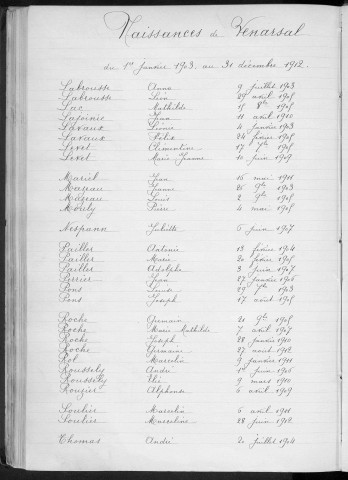 Naissances de Venarsal
du 1er Janvier 1903 au 31 décembre 1912.
Labrousse Anna 9 juillet 1903
Labrousse Léon 29 avril 1905
Lac Mathilde 15 8bre 1905
Lajoinie Jean 11 avril 1910
Lavaux Léonie 4 janvier 1903
Lavaux Félix 24 février 1905
Levet Clémentine 17 7bre 1905
Levet Marie Jeanne 10 juin 1909
Mariel Jean 15 mai 1911
Mazeau 25 9bre 1903
Mazeau Louis 2 9bre 1905
Mouly Pierre 4 mai 1905
Nespoux Juliette 5 juin 1907
Pailler Antoine 13 février 1904
Pailler Marie 20 février 1905
Pailler Adolphe 3 juin 1907
Perrier Jean 27 janvier 1906
Pons 29 7bre 1903
Pons Joseph 17 août 1905
Roche Germain 21 9bre 1905
Roche Marie Mathilde 7 avril 1907
Roche Joseph 28 janvier 1910
Roche Germaine 27 août 1912
Rol Marcelin 9 janvier 1911
Roussely André 1er juin 1906
Roussely Elie 9 mars 1910
Rouzier Alphonse 6 avril 1909
Soulier Marcelin 6 avril 1911
Soulier Marceline 28 juin 1912
Thomas André 20 juillet 1904